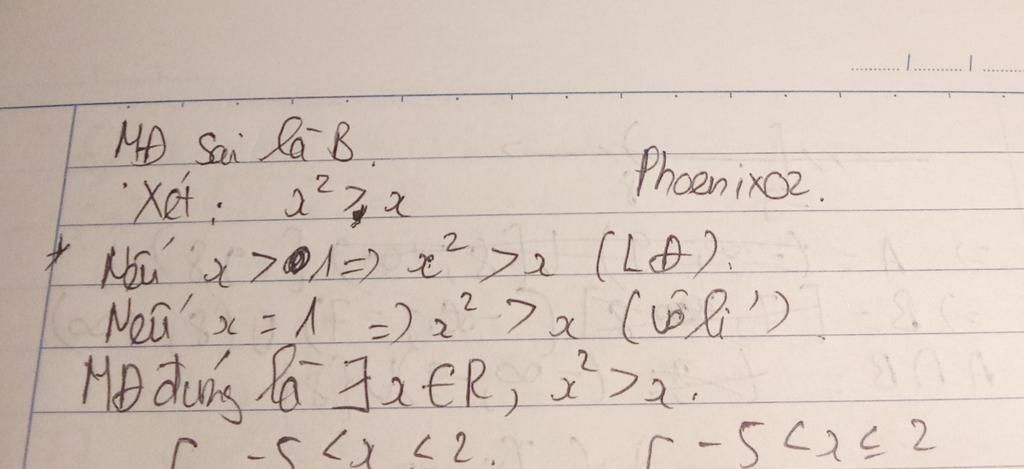 MĐ sai là B.
Xét: x² > x
Phoenix02.
* Nếu x > 1 => x² > x (LĐ).
Nếu x = 1 => x² > x (vô lí)
MĐ đúng là ∃x∈R, x² > x.
[ -5 < x < 2. [ -5 < x ≤ 2